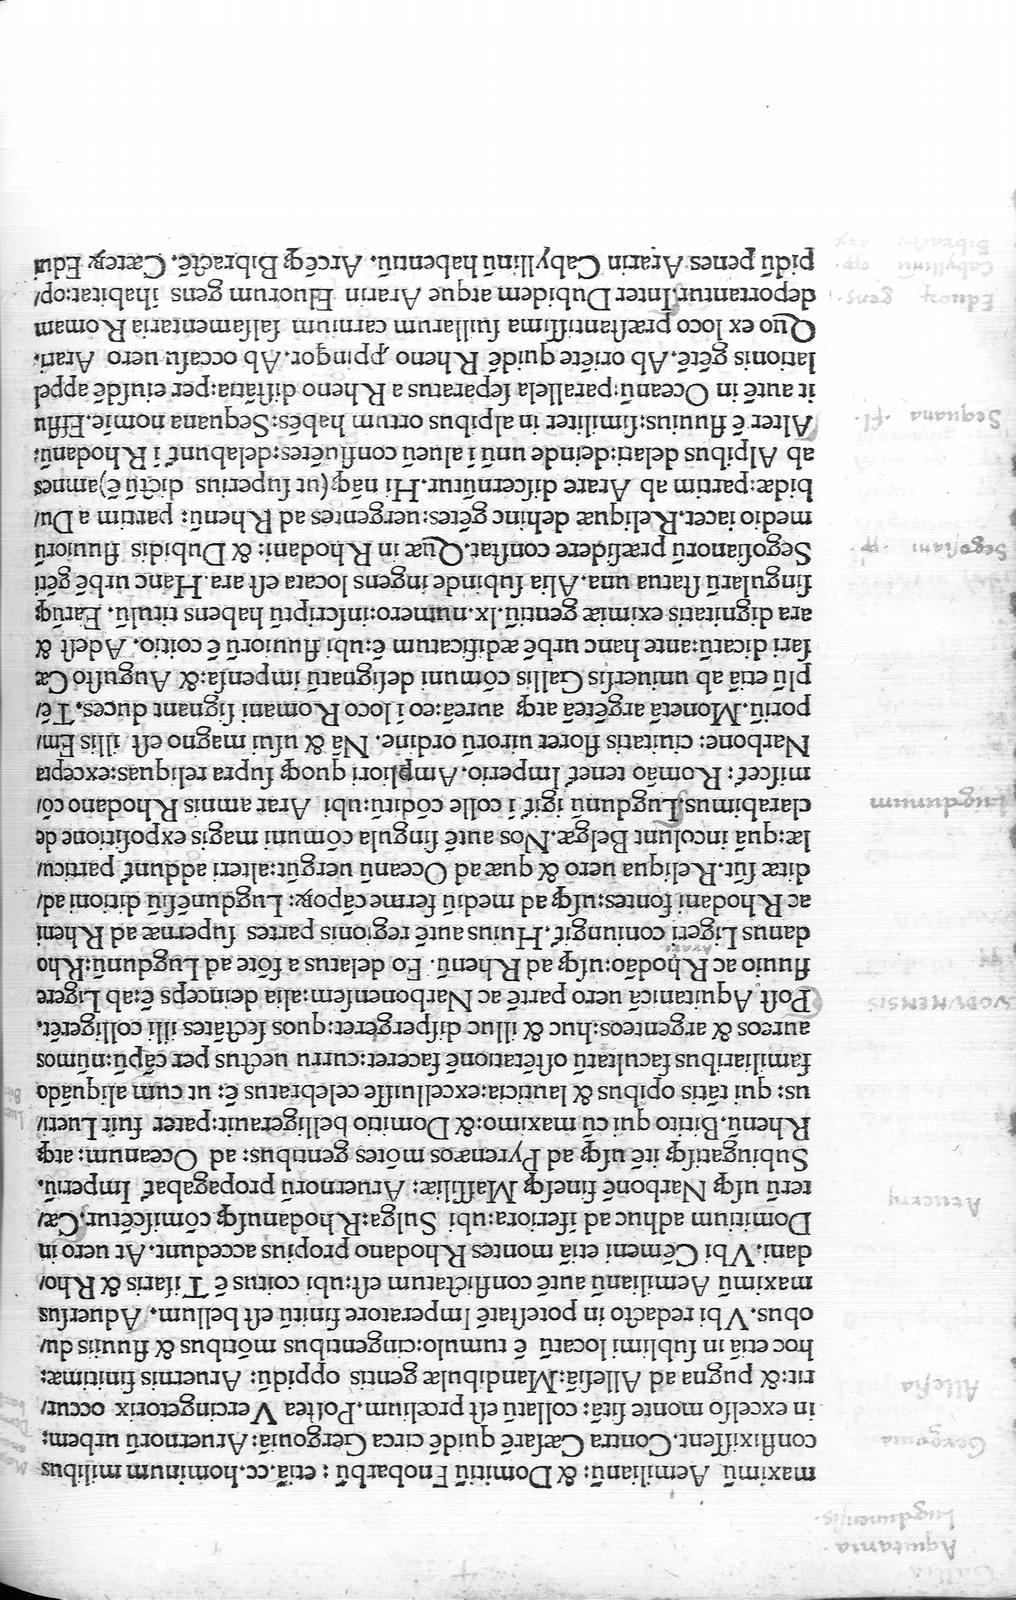 Gallia
Aquitania
Lugdunensis.
maximū Aemilianū: & Domitiū Enobarbū: etiā.cc.hominum milibus
conflixiſſent.Contra Cæſarē quidē circa Gergouiā: Aruernorū urbem:
in excelſo monte ſitā: collatū eſt prœlium.Poſtea Vercingetorix occur/
rit:& pugna ad Alleſiā: Mandibulæ gentis oppidū: Aruernis finitimæ:
hoc etiā in ſublimi locatū ē tumulo:cingentibus mōtibus & fluuiis du/
obus.Vbi redacto in poteſtatē Imperatore finitū eſt bellum. Aduerſus
maximū Aemilianū autē conflictatum eſt:ubi coitus ē Tiſaris & Rho/
dani.Vbi Cēmeni etiā montes Rhodano propius accedunt.At uero in
Domitium adhuc ad īferiora:ubi Sulga: Rhodanuſqꝫ cōmiſcētur.Cæ/
terū uſqꝫ Narbonē fineſqꝫ Maſſiliæ: Aruernorū propagabat̄ Imperiū.
Subiugatiſqꝫ itē uſqꝫ ad Pyrenæos mōtes gentibus: ad Oceanum: atqꝫ
Rhenū.Bitito qui cū maximo:& Domitio belligerauit:pater fuit Lueri/
us: qui tātis opibus & lauticia:excelluiſſe celebratus ē: ut cum aliquādo
familiaribus facultatū oſtētationē faceret:curru uectus per cāpū:nūmos
aureos & argenteos:huc & illuc diſpergeret:quos ſectātes illi colligerēt.
Poſt Aquitanicā uero partē ac Narbonenſem:alia deinceps ē:ab Ligere
fluuio ac Rhodāo:uſqꝫ ad Rhenū. Eo delatus a fōte ad Lugdunū:Rho
danus Ligeri coniungit̄.Huius autē regionis partes ſupernæ ad Rheni
ac Rhodani fontes:uſqꝫ ad mediū ferme cāpoꝝ: Lugdunēſiū ditioni ad/
ditæ ſūt.Reliqua uero & quæ ad Oceanū uergūt:alteri addunt̄ particu/
læ:quā incolunt Belgæ.Nos autē ſingula cōmuni magis expoſitione de
clarabimus.Lugdunū igit̄ ī colle cōditū:ubi Arar amnis Rhodano cō/
miſcet̄: Romāo tenet̄ Imperio. Ampliori quoqꝫ ſupra reliquas:excepta
Narbone: ciuitatis floret uirorū ordine. Nā & uſui magno eſt illis Em/
poriū.Monetā argēteā atqꝫ aureā:eo ī loco Romani ſignant duces. Tē/
plū etiā ab uniuerſis Gallis cōmuni deſignatū impenſa:& Auguſto Cæ
ſari dicatū:ante hanc urbē ædificatum ē:ubi fluuiorū ē coitio. Adeſt &
ara dignitatis eximiæ gentiū.lx.numero:inſcriptū habens titulū. Earūqꝫ
ſingularū ſtatua una.Alia ſubinde ingens locata eſt ara.Hanc urbē gēti
Segoſianorū præſidere conſtat.Quæ in Rhodani: & Dubidis fluuiorū
medio iacet.Reliquæ dehinc gētes:uergentes ad Rhenū: partim a Du/
bidæ:partim ab Arare diſcernūtur.Hi nāqꝫ(ut ſuperius dictū ē)amnes
ab Alpibus delati:deinde unū ī alueū confluētes:delabunt̄ ī Rhodanū:
Alter ē fluuius:ſimiliter in alpibus ortum habēs:Sequana nomie.Efflu
it autē in Oceanū:parallela ſeparatus a Rheno diſtātia:per eiuſdē appel
lationis gētē.Ab oriēte quidē Rheno ꝓpinqor.Ab occaſu uero Arari.
Quo ex loco præſtantiſſima ſuillarum carnium ſalſamentaria Romam
deportantur.Inter Dubidem atque Ararin Eluorum gens ihabitat:op/
pidū penes Ararin Cabyllinū habentū. Arcēqꝫ Bibractē. Cæteꝝ Edui
Gergouia
Alleſia
Aruerny
Lugdunum
Segoſiani .pp.
Sequana .fl.
Eduoꝝ gens.
Cabyllinū opp.
Bibracte arx